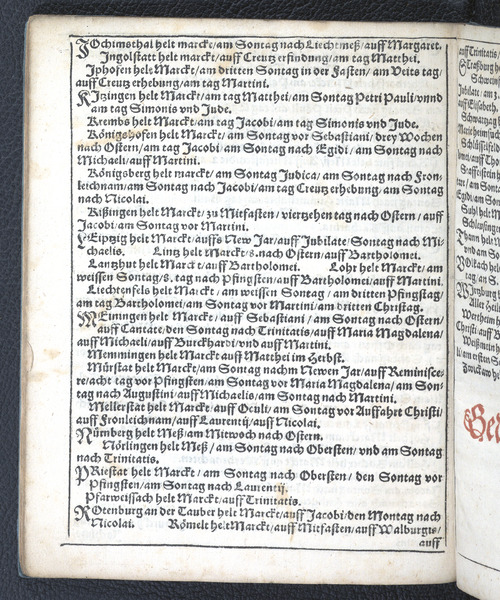 JOchimsthal helt marckt/ am Sontag nach Liechtmeß/ auff Margaret.
Ingolstatt helt marckt/ auff Creutz erfindung/ am tag Matthei.
Iphofen helt Marckt/ am dritten Sontag in der Fasten/ am Veits tag/
auff Creutz erhebung/ am tag Martini.
KItzingen helt Marckt/ am tag Matthei/ am Sontag Petri Pauli/ vnnd
am tag Simonis vnd Jude.
Krembs helt Marckt/ am tag Jacobi/ am tag Simonis vnd Jude.
Königshofen helt Marckt/ am Sontag vor Sebastiani/ drey Wochen
nach Ostern/ am tag Jacobi/ am Sontag nach Egidi/ am Sontag nach
Michaeli/ auff Martini.
Königsberg helt marckt/ am Sontag Judica/ am Sontag nach Fron-
leichnam/ am Sontag nach Jacobi/ am tag Creutz erhebung/ am Sontag
nach Nicolai.
Kißingen helt Marckt/ zu Mitfasten/ viertzehen tag nach Ostern/ auff
Jacobi/ am Sontag vor Martini.
LEipzig helt Marckt/ auffs New Jar/ auff Jubilate/ Sontag nach Mi-
chaelis. Lintz helt Marckt/ 8. nach Ostern/ auff Bartholomei.
Lantzhut helt Marckt/ auff Bartholomei. Lohr helt Marckt/ am
weissen Sontag/ 8. tag nach Pfingsten/ auff Bartholomei/ auff Martini.
Liechtenfels helt Marckt/ am weissen Sontag/ am dritten Pfingstag/
am tag Bartholomei/ am Sontag vor Martini/ am dritten Christag.
MEiningen helt Marckt/ auff Sebastiani/ am Sontag nach Ostern/
auff Cantate/ den Sontag nach Trinitatis/ auff Maria Magdalena/
auff Michaeli/ auff Burckhardi/ vnd auff Martini.
Memmingen helt Marckt auff Matthei im Herbst.
Mürstat helt Marckt/ am Sontag nachm Newen Jar/ auff Reminisce-
re/ acht tag vor Pfingsten/ am Sontag vor Maria Magdalena/ am Son-
tag nach Augustini/ auff Michaelis/ am Sontag nach Martini.
Mellerstat helt Marckt/ auff Oculi/ am Sontag vor Auffahrt Christi/
auff Fronleichnam/ auff Laurentij/ auff Nicolai.
NUrmberg helt Meß/ am Mitwoch nach Ostern.
Nörlingen helt Meß/ am Sontag nach Obersten/ vnd am Sontag
nach Trinitatis.
PRiestat helt Marckt/ am Sontag nach Obersten/ den Sontag vor
Pfingsten/ am Sontag nach Laurentij.
Pfarweissach helt Marckt/ auff Trinitatis.
ROtenburg an der Tauber helt Marckt/ auff Jacobi/ den Montag nach
Nicolai. Römelt helt Marckt/ auff Mitfasten/ auff Walburgis/
auff